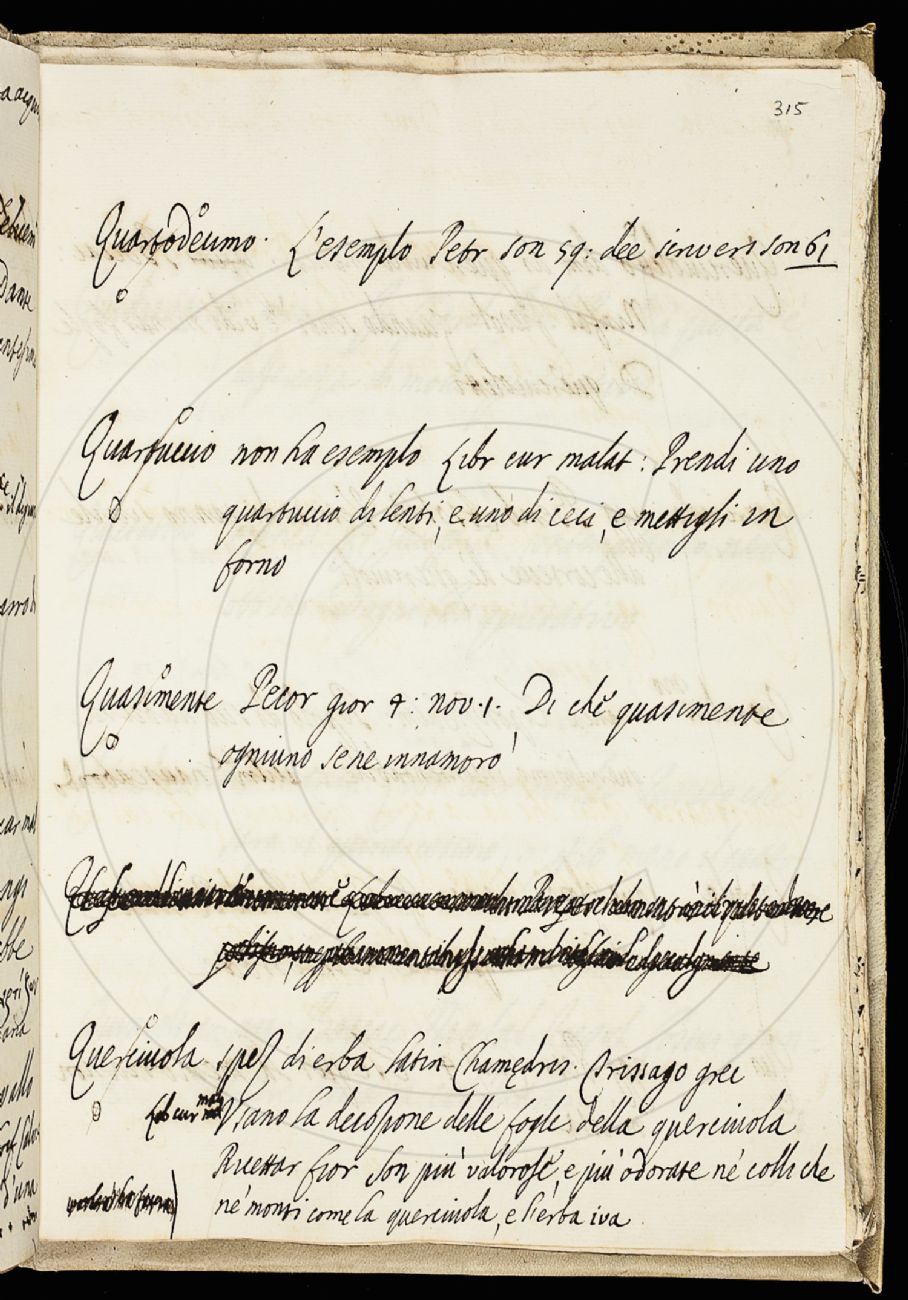 315
Quartodecimo. L'esempio Petr son 59: dee scriversi son 61
Quartuccio non ha esempio Libr cur malat: Prendi uno
quartuccio di lenti, e uno di ceci, e mettigli in
forno
Quasimente Pecor gior 4: nov. 1. Di che quasimente
ogniuno se ne innamorò
Querciuola spez di erba latin Chamędris. Trissago grec
Lib cur Usano la decozione delle foglie della querciuola
Ricettar fior son più valorose, e più odorate ne' colli che
ne' monti come la querciuola, e l'erba iva